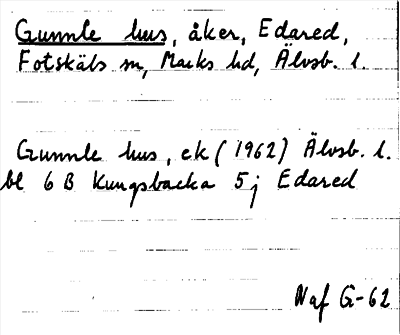 Gunnle hus, åker, Edared,
Fotskäls sn, Marks hd, Älvsb. l.
Gunnle hus, ek (1962) Älvsb. l.
bl 6 B Kungsbacka 5 j Edared
Naf G-62